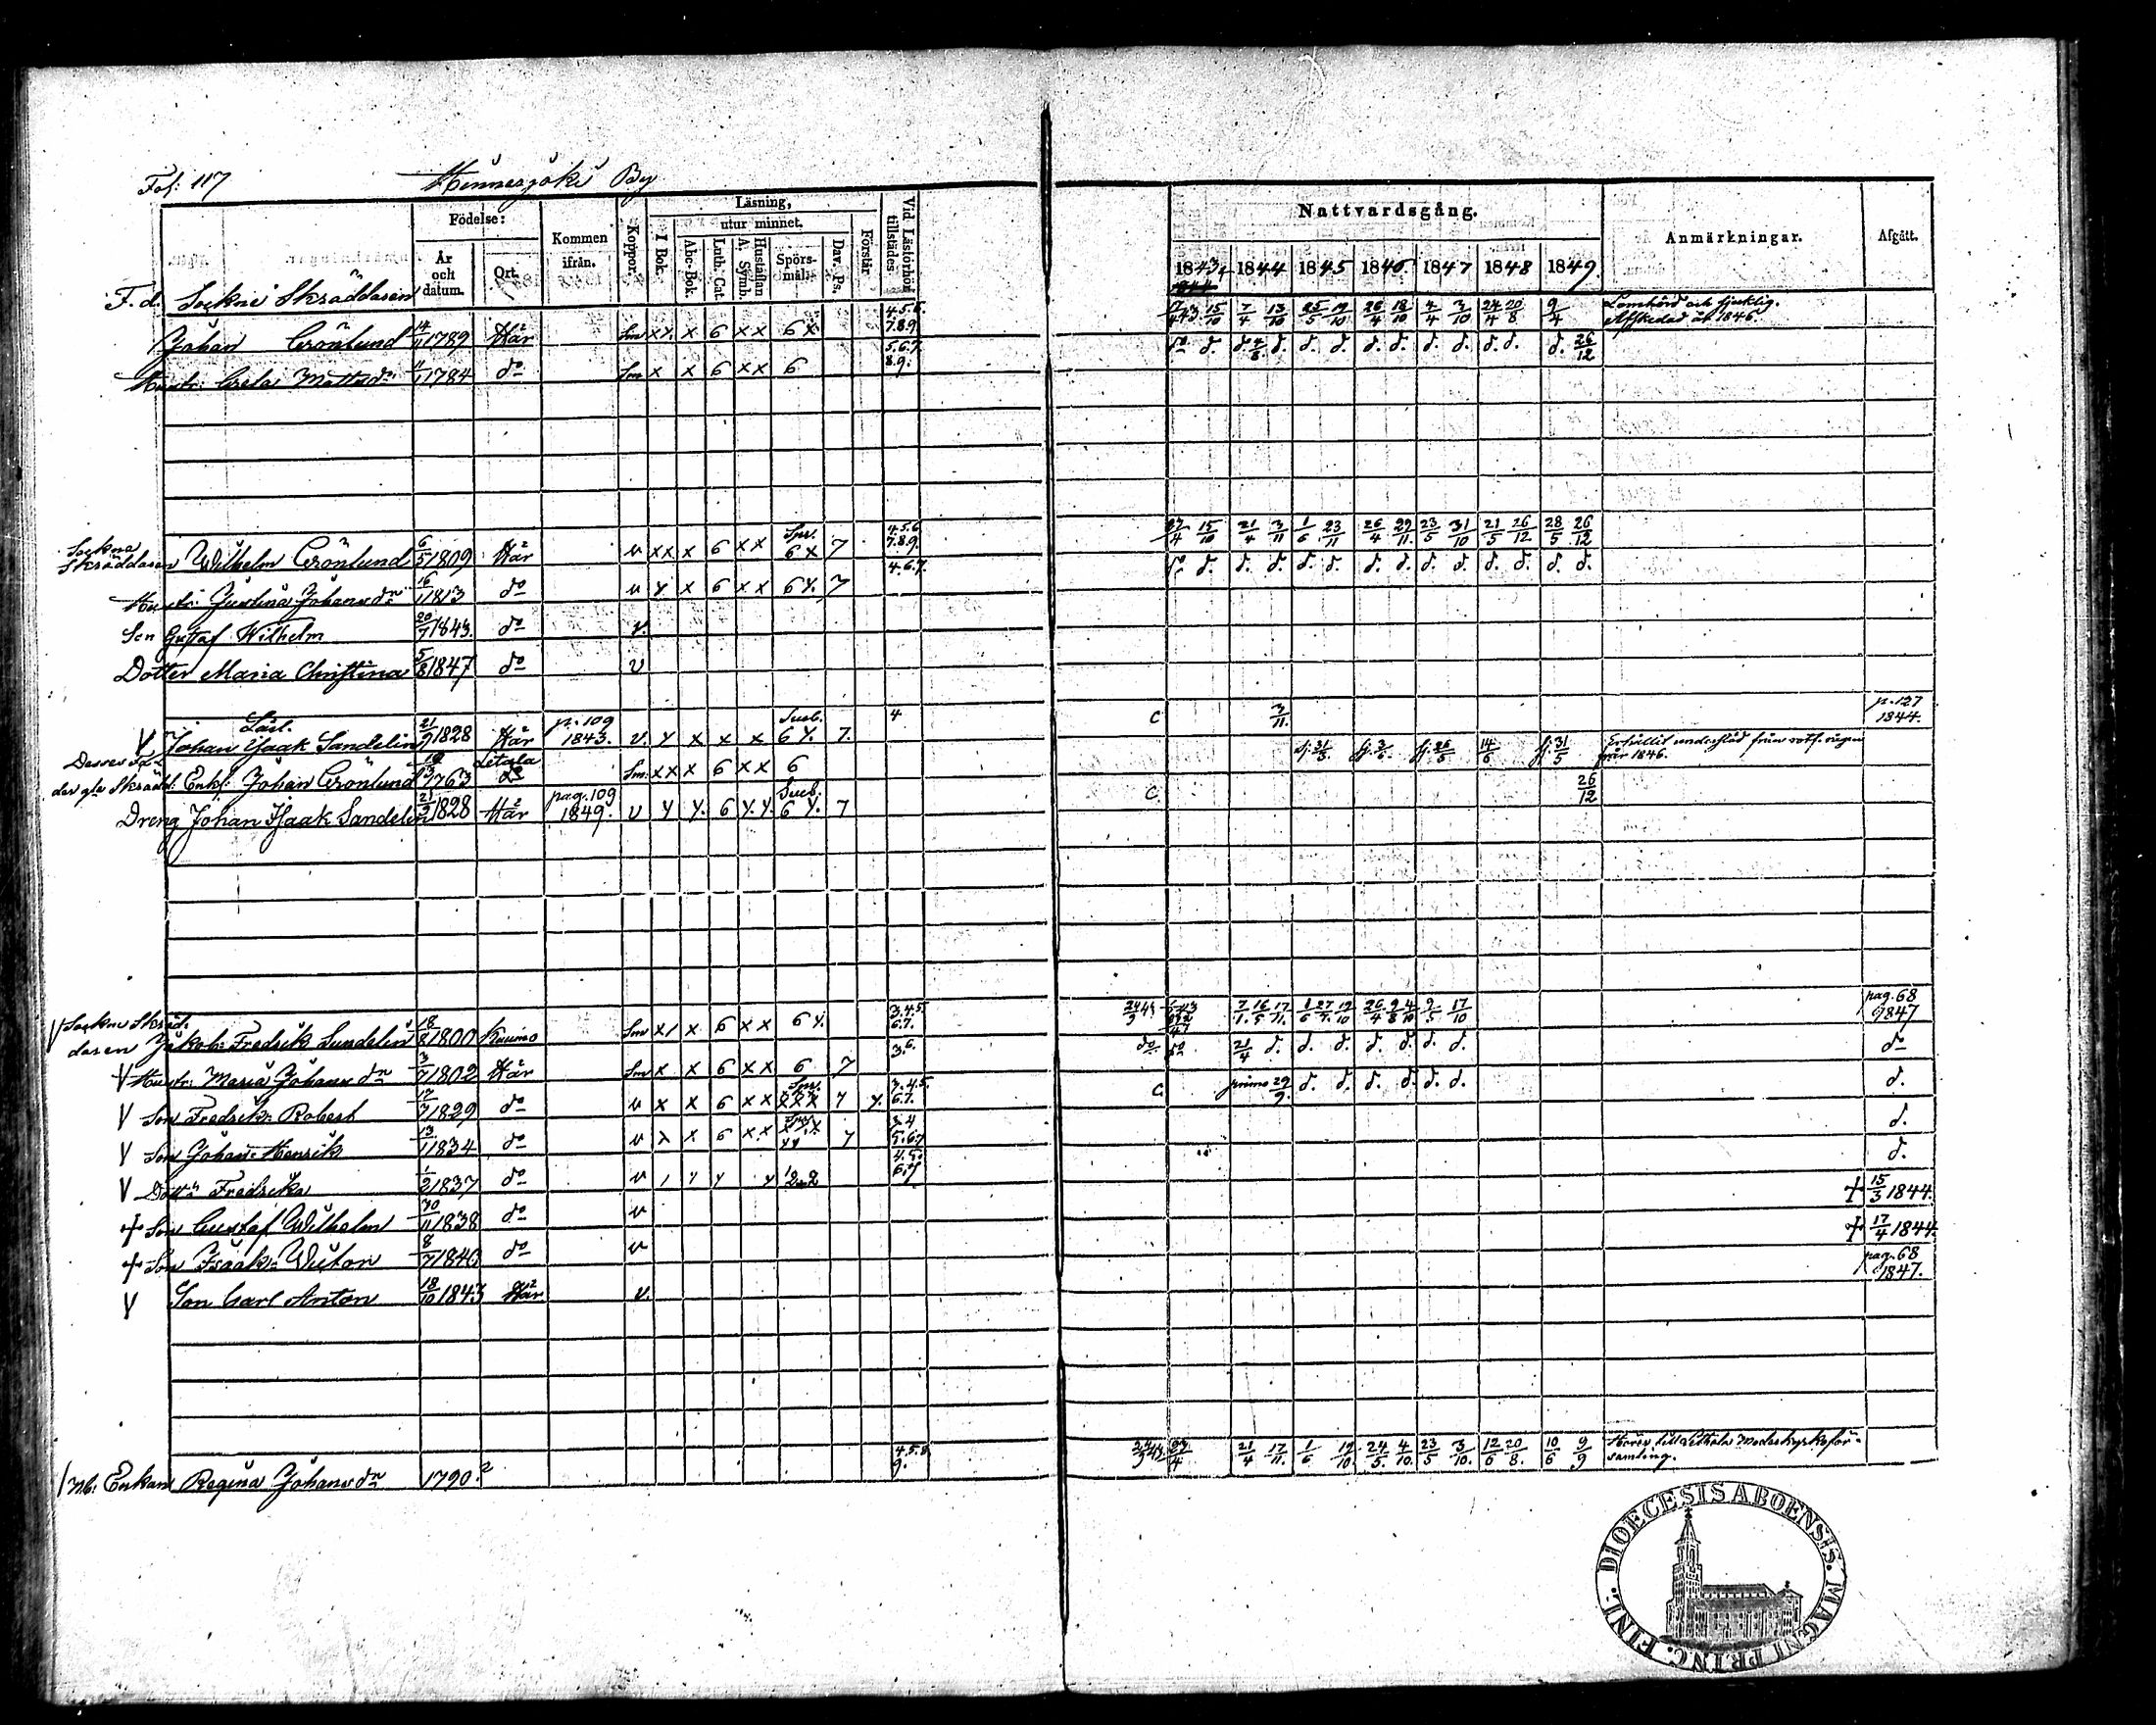 Fol: 117 Hinnerjoki By
Födelse: År och datum. Ort. Kommen ifrån. Koppor. Läsning, I Bok. utur minnet. Abc-Bok. Luth. Cat. A. Symb. Hustaflan Spörsmål. Dav. Ps. Förstår Vid Läsförhör tillstädes Nattvardsgång. 1843 1844 1845 1846. 1847 1848 1849. Anmärkningar. Afgått.
F. d. Sockne Skräddaren
Johan Grönlund 14/11 1789 Här Sm xx x 6 xx 6 x 4.5.6. 7.8.9 15/10 7/4 13/10 25/5 19/10 26/4 18/10 4/4 3/10 24/4 20/8 9/4 Lomhörd och sjuklig. Afskedad år 1846.
Hustr. Greta Mattsdr 1784 do Sm x x 6 xx 6 5.6.7. 8.9. do d. d. d. d. d. d. d. d. d. d. d. d. 26/12
Sockne
Skräddaren Wilhelm Grönlund 6/5 1809 Här v xx x 6 xx 6 x 7 4.5.6. 7.8.9. 15/10 21/4 3/11 1/6 23/11 26/4 29/11 23/5 31/10 21/5 26/12 28/5 26/12
Hustr. Justina Johansdr 16/1 1813 do v y x 6 xx 6 y. 7 4.6.7. do d. d. d. d. d. d. d. d. d. d. d. d. d.
Son Gustaf Wilhelm 20/7 1843. do v.
Dotter Maria Christina 5/8 1847 do v
Lärl.
V Johan Isaak Sandelin 21/9 1828 Här p. 109 1843. v. y x x x 6 y. 7. 4 C 3/11. p. 127 1844.
der gla Skrädd: Enkl. Johan Grönlund 1763 Letala Sm. xx x 6 xx 6 31/5 14/6 31/5 år 1846.
Dreng Johan Isaak Sandelin 21/9 1828 Här pag. 109 1849. v y y. 6 y. y. 6 y. 7 C. 26/12
V Sockne Skräd-
daren Jakob Fredrik Sundelin 18/8 1800 Raumo Sm x/ x 6 xx 6 y. 3.4.5. 6.7. 7/1. 16/5 17/11. 1/6 27/7. 19/10 26/4 9/8 4/10 9/5 17/10 pag. 68 1847
V Hustr. Maria Johansdr 3/7 1802 Här Sm x x 6 xx 6 7 3.6. do do 21/4 d. d. d. d. d. d. d. do
V Son Fredrik Robert 17/7 1829 do v x x 6 xx xxx 7 y. 3.4.5. 6.7. C primo 29/9. d. d. d. d. d. d. d.
V Son Johan Henrik 13/1 1834 do v x x 6 x.x 7 3.4 5.6.7 d.
V Dottr Fredrika 1/2 1837 do v 4.5. 6.7 d.
+ Son Gustaf Wilhelm 30/11 1838 do v + 15/3 1844.
+ Son Isaak Victor 8/7 1840 do v + 17/4 1844.
V Son Carl Anton 18/10 1843 Här v. pag. 68 1847.
Nb: Enkan Regina Johansdr 1790. 4.5.8 9. 21/4 17/11. 1/6 19/10 24/5. 4/10. 23/5 3/10. 12/6 20/8. 10/6 9/9 Hörer till Letala Moderkyrkoför-
samling.
DIOECESIS ABOENSIS. MAGNI PRINC. FINL.